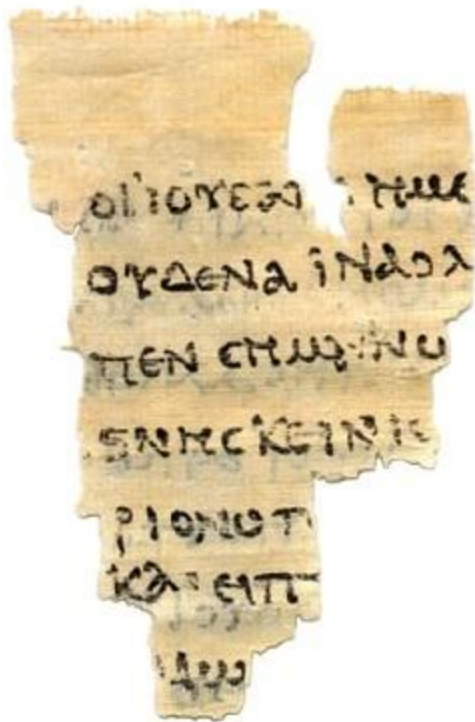 ΟΙ ΙΟΥΔΑΙ ΗΜΕ
ΟΥΔΕΝΑ ΪΝΑ Ο Λ
ΠΕΝ CΗΜΑΙΝΩ
ΘΝΗCΚΕΙΝ ΙC
ΡΙΟΝ Ο Π
ΚΑΙ ΕΙΠ
ΑΙΩ